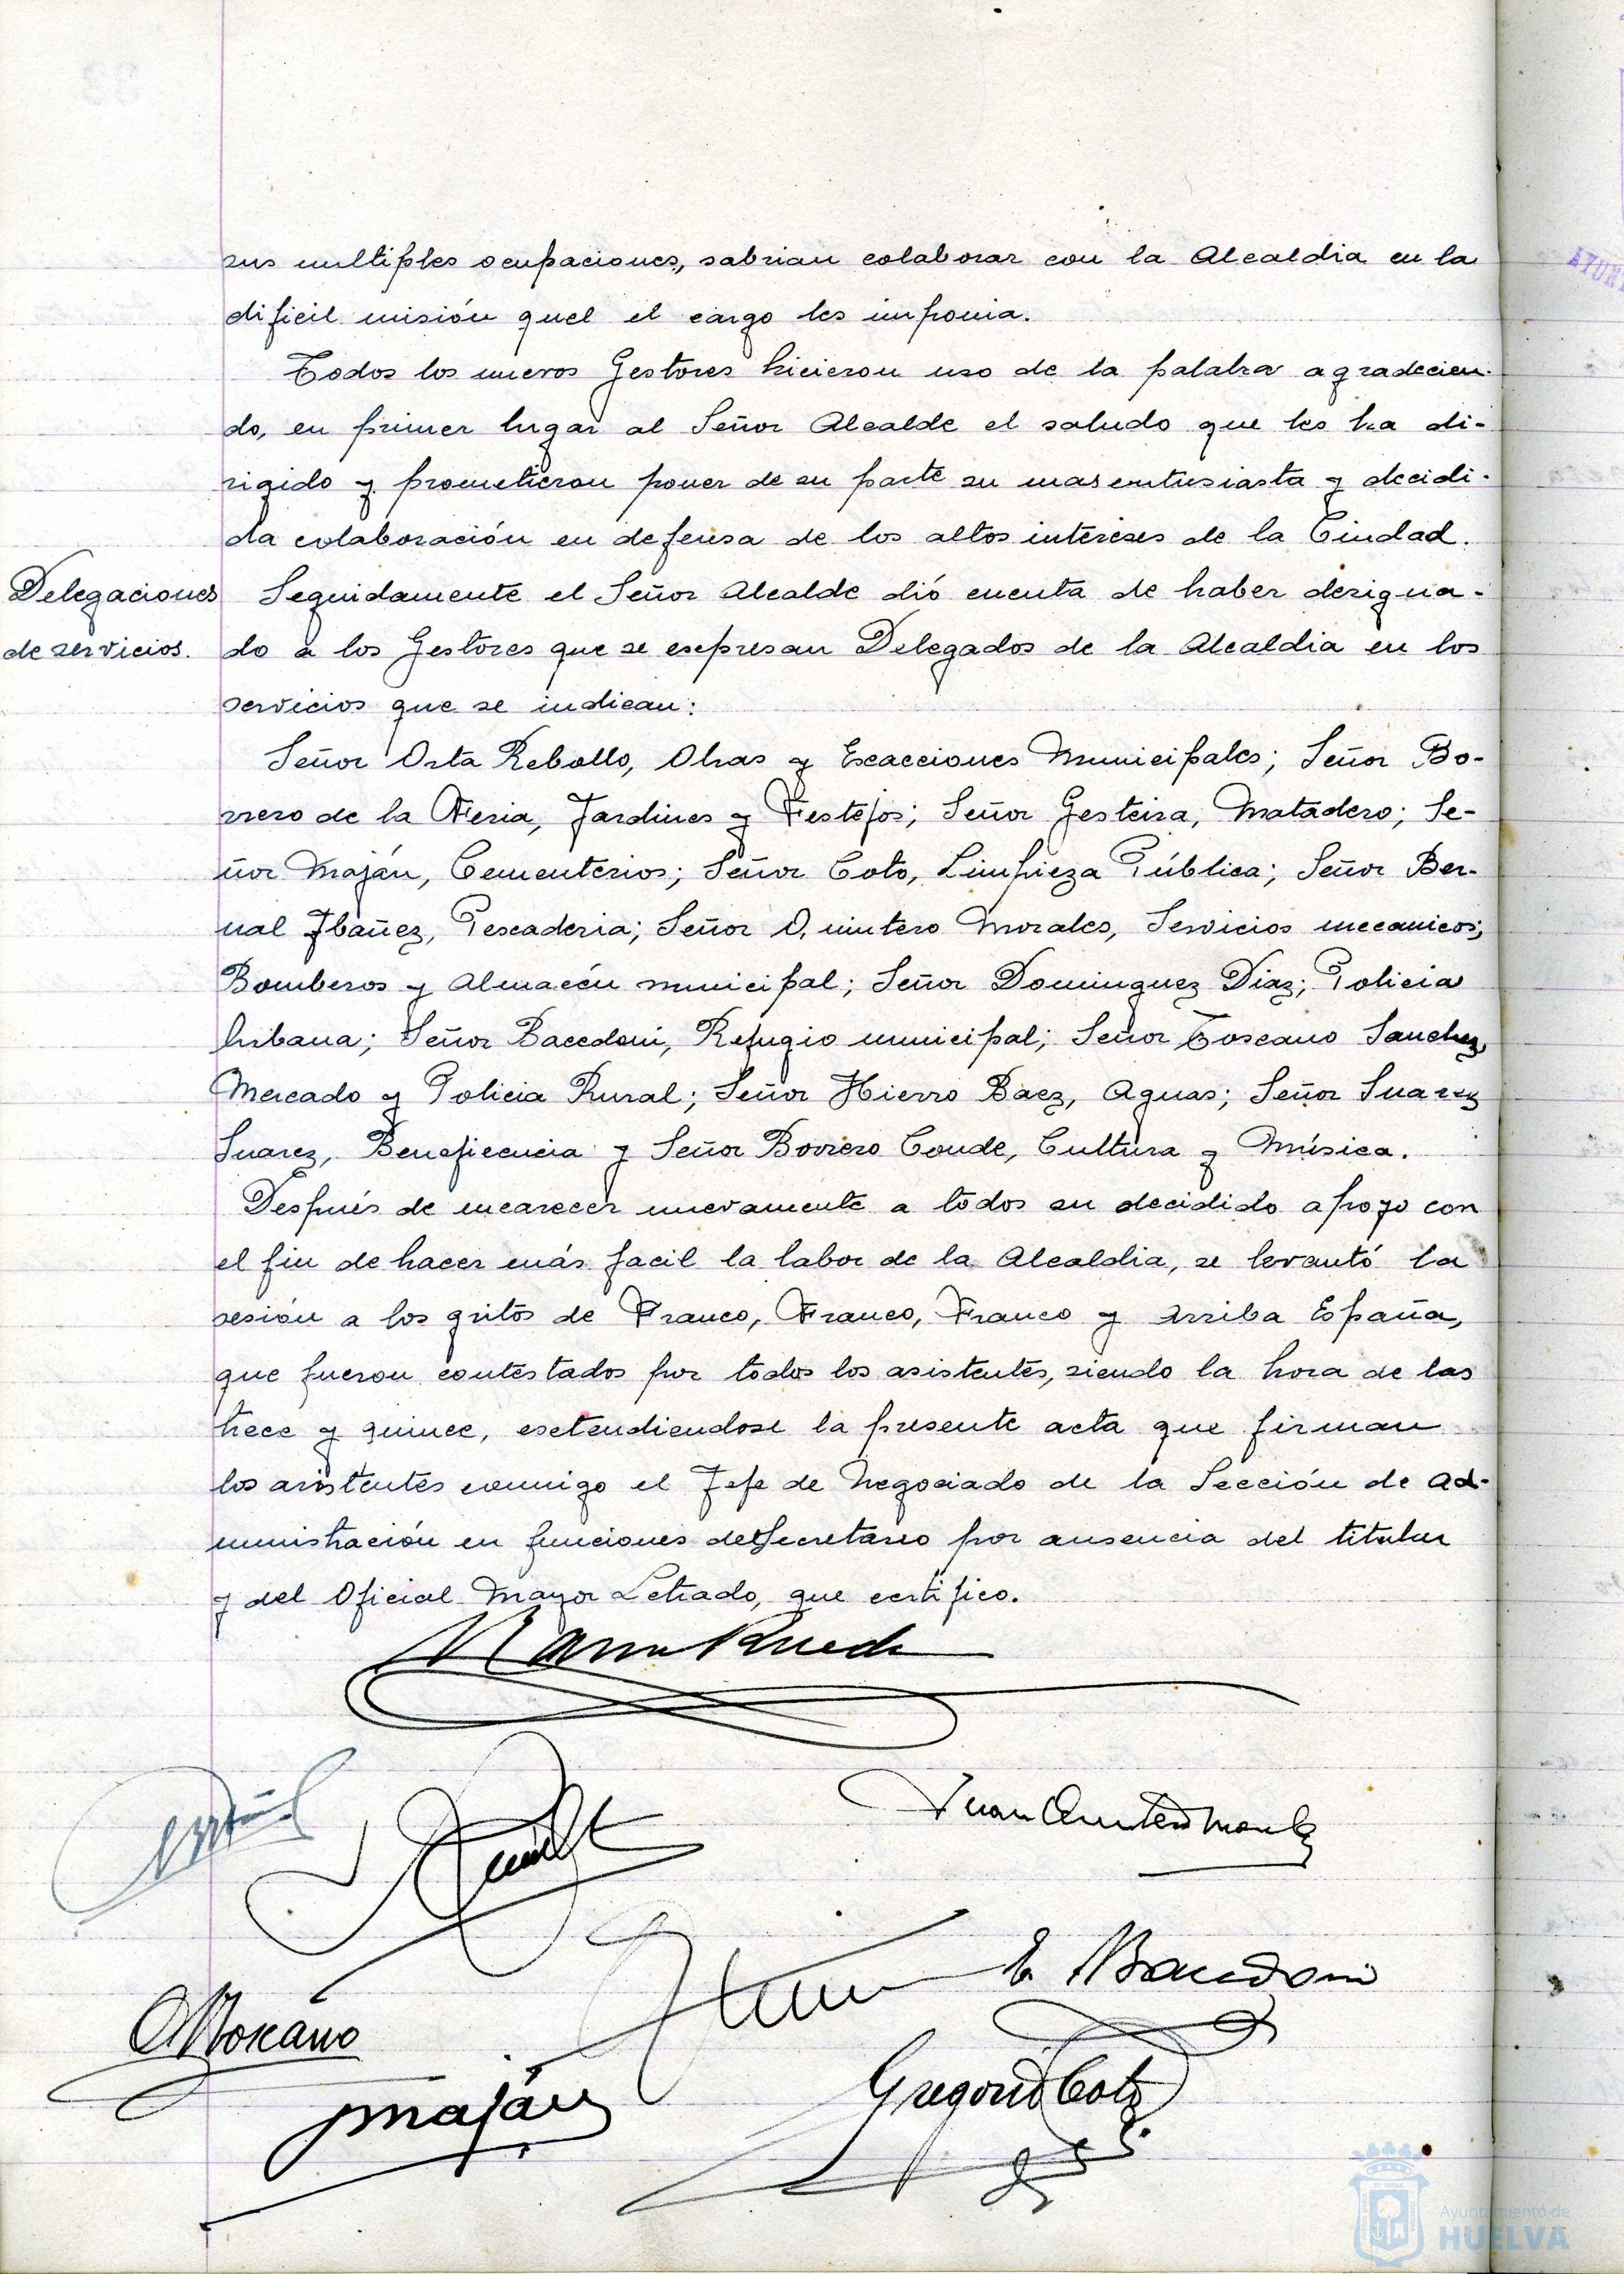 sus multiples ocupaciones, sabrian colaborar con la Alcaldia en la
dificil misión quel el cargo les imponia.
Todos los nuevos Gestores hicieron uso de la palabra agradecien-
do, en primer lugar al Señor Alcalde el saludo que les ha di-
rigido y prometieron poner de su parte su mas entusiasta y decidi-
da colaboración en defensa de los altos intereses de la Ciudad.
Delegaciones
de servicios.
Seguidamente el Señor Alcalde dió cuenta de haber designa-
do a los Gestores que se espresan Delegados de la Alcaldia en los
servicios que se indican:
Señor Orta Rebollo, Obras y Esacciones Municipales; Señor Bo-
rrero de la Feria, Jardines y Festejos; Señor Gesteira, Matadero; Se-
ñor Maján, Cementerios; Señor Coto, Limpieza Pública; Señor Ber-
nal Ibañez, Pescaderia; Señor Quintero Morales, Servicios mecanicos;
Bomberos y Almacén municipal; Señor Dominguez Diaz; Policia
Urbana; Señor Bacedoni, Refugio municipal; Señor Toscano Sanchez,
Mercado y Policia Rural; Señor Hierro Baez, Aguas; Señor Suarez
Suarez, Beneficencia y Señor Borrero Conde, Cultura y Música.
Después de encarecer nuevamente a todos su decidido apoyo con
el fin de hacer más facil la labor de la Alcaldia, se levantó la
sesión a los gritos de Franco, Franco, Franco y Arriba España,
que fueron contestados por todos los asistentes, siendo la hora de las
trece y quince, esetendiendose la presente acta que firman
los asistentes conmigo el Jefe de Negociado de la Sección de Ad-
ministración en funciones de Secretario por ausencia del titular
y del Oficial Mayor Letrado, que certifico.
Juan Quintero Morales
E. Bacedoni
Toscano
Maján
Gregorio Coto
Ayuntamiento de
HUELVA